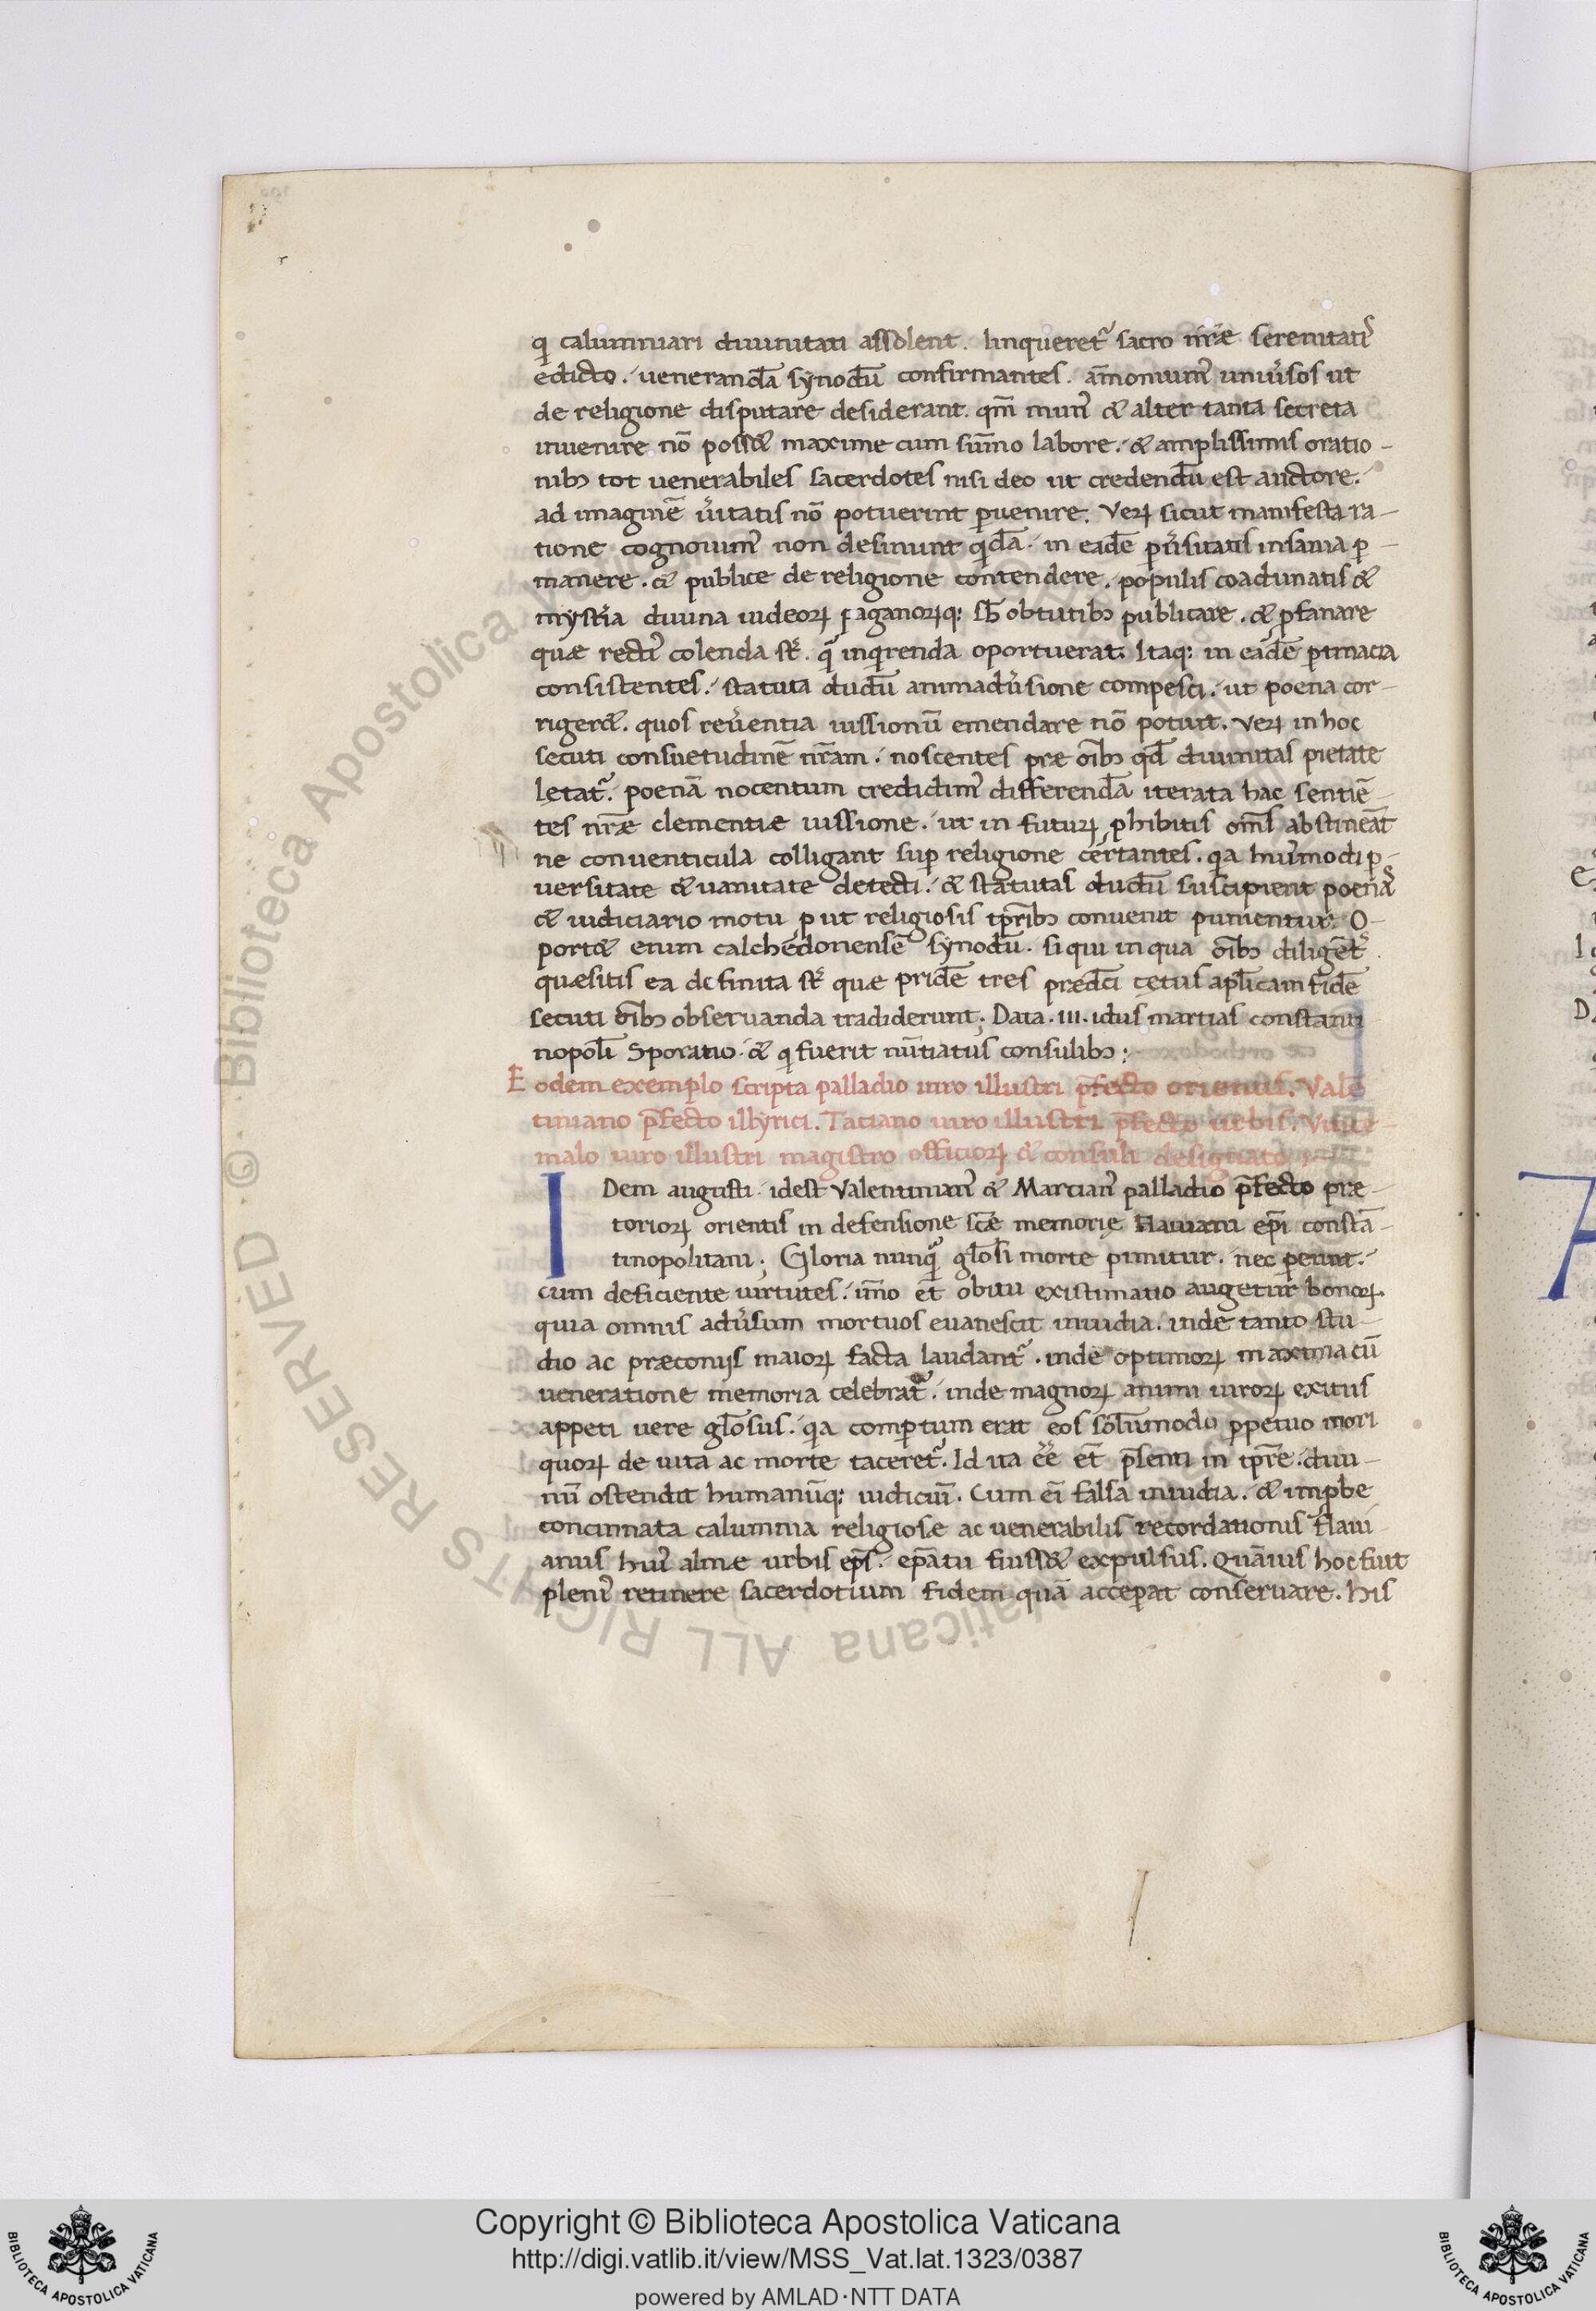 qi calumniari diuinitati assolent. linqueret᷑ sacro nr̄æ serenitatiˢ
edicto. uenerandā synodū confirmantes. am̄onium᷒ uniu͛sos ut
de religione disputare desiderant. qm̄ nun᷒ & alter tanta secreta
inuenire nō poss& maxime cum sum̄o labore. & amplissimis oratio-
nibꝫ tot uenerabiles sacerdotes nisi deo ut credendū est auctore.
ad imaginē u͛itatis nō potuerint ꝑuenire. Verꝝ sicut manifesta ra-
tione cognouim᷒ non desinunt qdā. in eadē ꝑu͛sitatis insania ꝑ-
manere. & publice de religione contendere. populis coadunatis &
mysteria diuina iudeorꝝ paganorꝝq: sb̄ obtutibꝫ publicare. & ꝓfanare
quæ recti᷒ colenda st̄. qᵃ̄ inqirenda oportuerat. Itaq: in eadē ꝑtinacia
consistentes. statuta dudū animadu͛sione compesci. ut poena cor-
riger&. quos reu͛entia iussionū emendare nō potuit. Verꝝ in hoc
secuti consuetudinē nr̄am. noscentes præ om̄ibꝫ qd̄ diuinitas pietate
letat᷑. poenā nocentum credidim᷒ differendā iterata hac sentiē-
tes nr̄æ clementiæ iussione. ut in futurꝝ ꝓhibitis om̄s abstineāt
ne conuenticula colligant suꝑ religione certantes. qia hui᷒modi ꝑ-
uersitate & uanitate detecti. & statutas dudū suscipient poenaˢ
& iudiciario motu ꝓut religiosis tꝑribꝫ conuenit punientur. O-
port& enim calchedonensē synodū. sequi in qua om̄ibꝫ diligent᷑
quæsitis ea definita st̄ quæ pridē tres prædc̄i cętus apl̄icam fidē
secuti om̄ibꝫ obseruanda tradiderunt; Data. III. idus martias constanti
nopoli Sporatio. & qi fuerit nūtiatus consulibꝫ;
Eodem exemplo scripta palladio uiro illustri p̄fecto orientis. Valē
tiniano p̄fecto illyrici. Taciano uiro illustri p̄fecto urbis. Vinco-
malo uiro illustri magistro officiorꝝ & consuli designato
IDem augusti. idest Valentinian᷒ & Marcian᷒ palladio p̄fecto præ-
toriorꝝ orientis in defensione sc̄æ memorię flauiani ep̄i constā-
tinopolitani; Gloria nunqᵃ̄ gl̄osi morte punitur. nec ꝑeunt.
cum deficiente uirtutes. im̄o et̄ obitu existimatio augetur bonorꝝ.
quia omnis adu͛sum mortuos euanescit inuidia. inde tanto stu-
dio ac præconijs maiorꝝ facta laudant᷑. inde optimorꝝ maxima cū
ueneratione memoria celebrat᷑. inde magnorꝝ animi uirorꝝ exitus
appeti uere gl̄osus. qia comꝑtum erat eos solūmodo ꝑpetuo mori
quorꝝ de uita ac morte taceret᷑. Id ita ēē et̄ p̄senti in tꝑre. diui-
nū ostendit humanūq: iudiciū. Cum ei̅ falsa inuidia. & imꝓbe
concinnata calumnia religiosæ ac uenerabilis recordationis flaui
anus hui᷒ almæ urbis ep̄s. ep̄atu fuiss& expulsus. Quāuis hoc fuit
pleni᷒ retinere sacerdotium fidem quā acceꝑat conseruare. his
Copyright © Biblioteca Apostolica Vaticana
http://digi.vatlib.it/view/MSS_Vat.lat.1323/0387
powered by AMLAD·NTT DATA